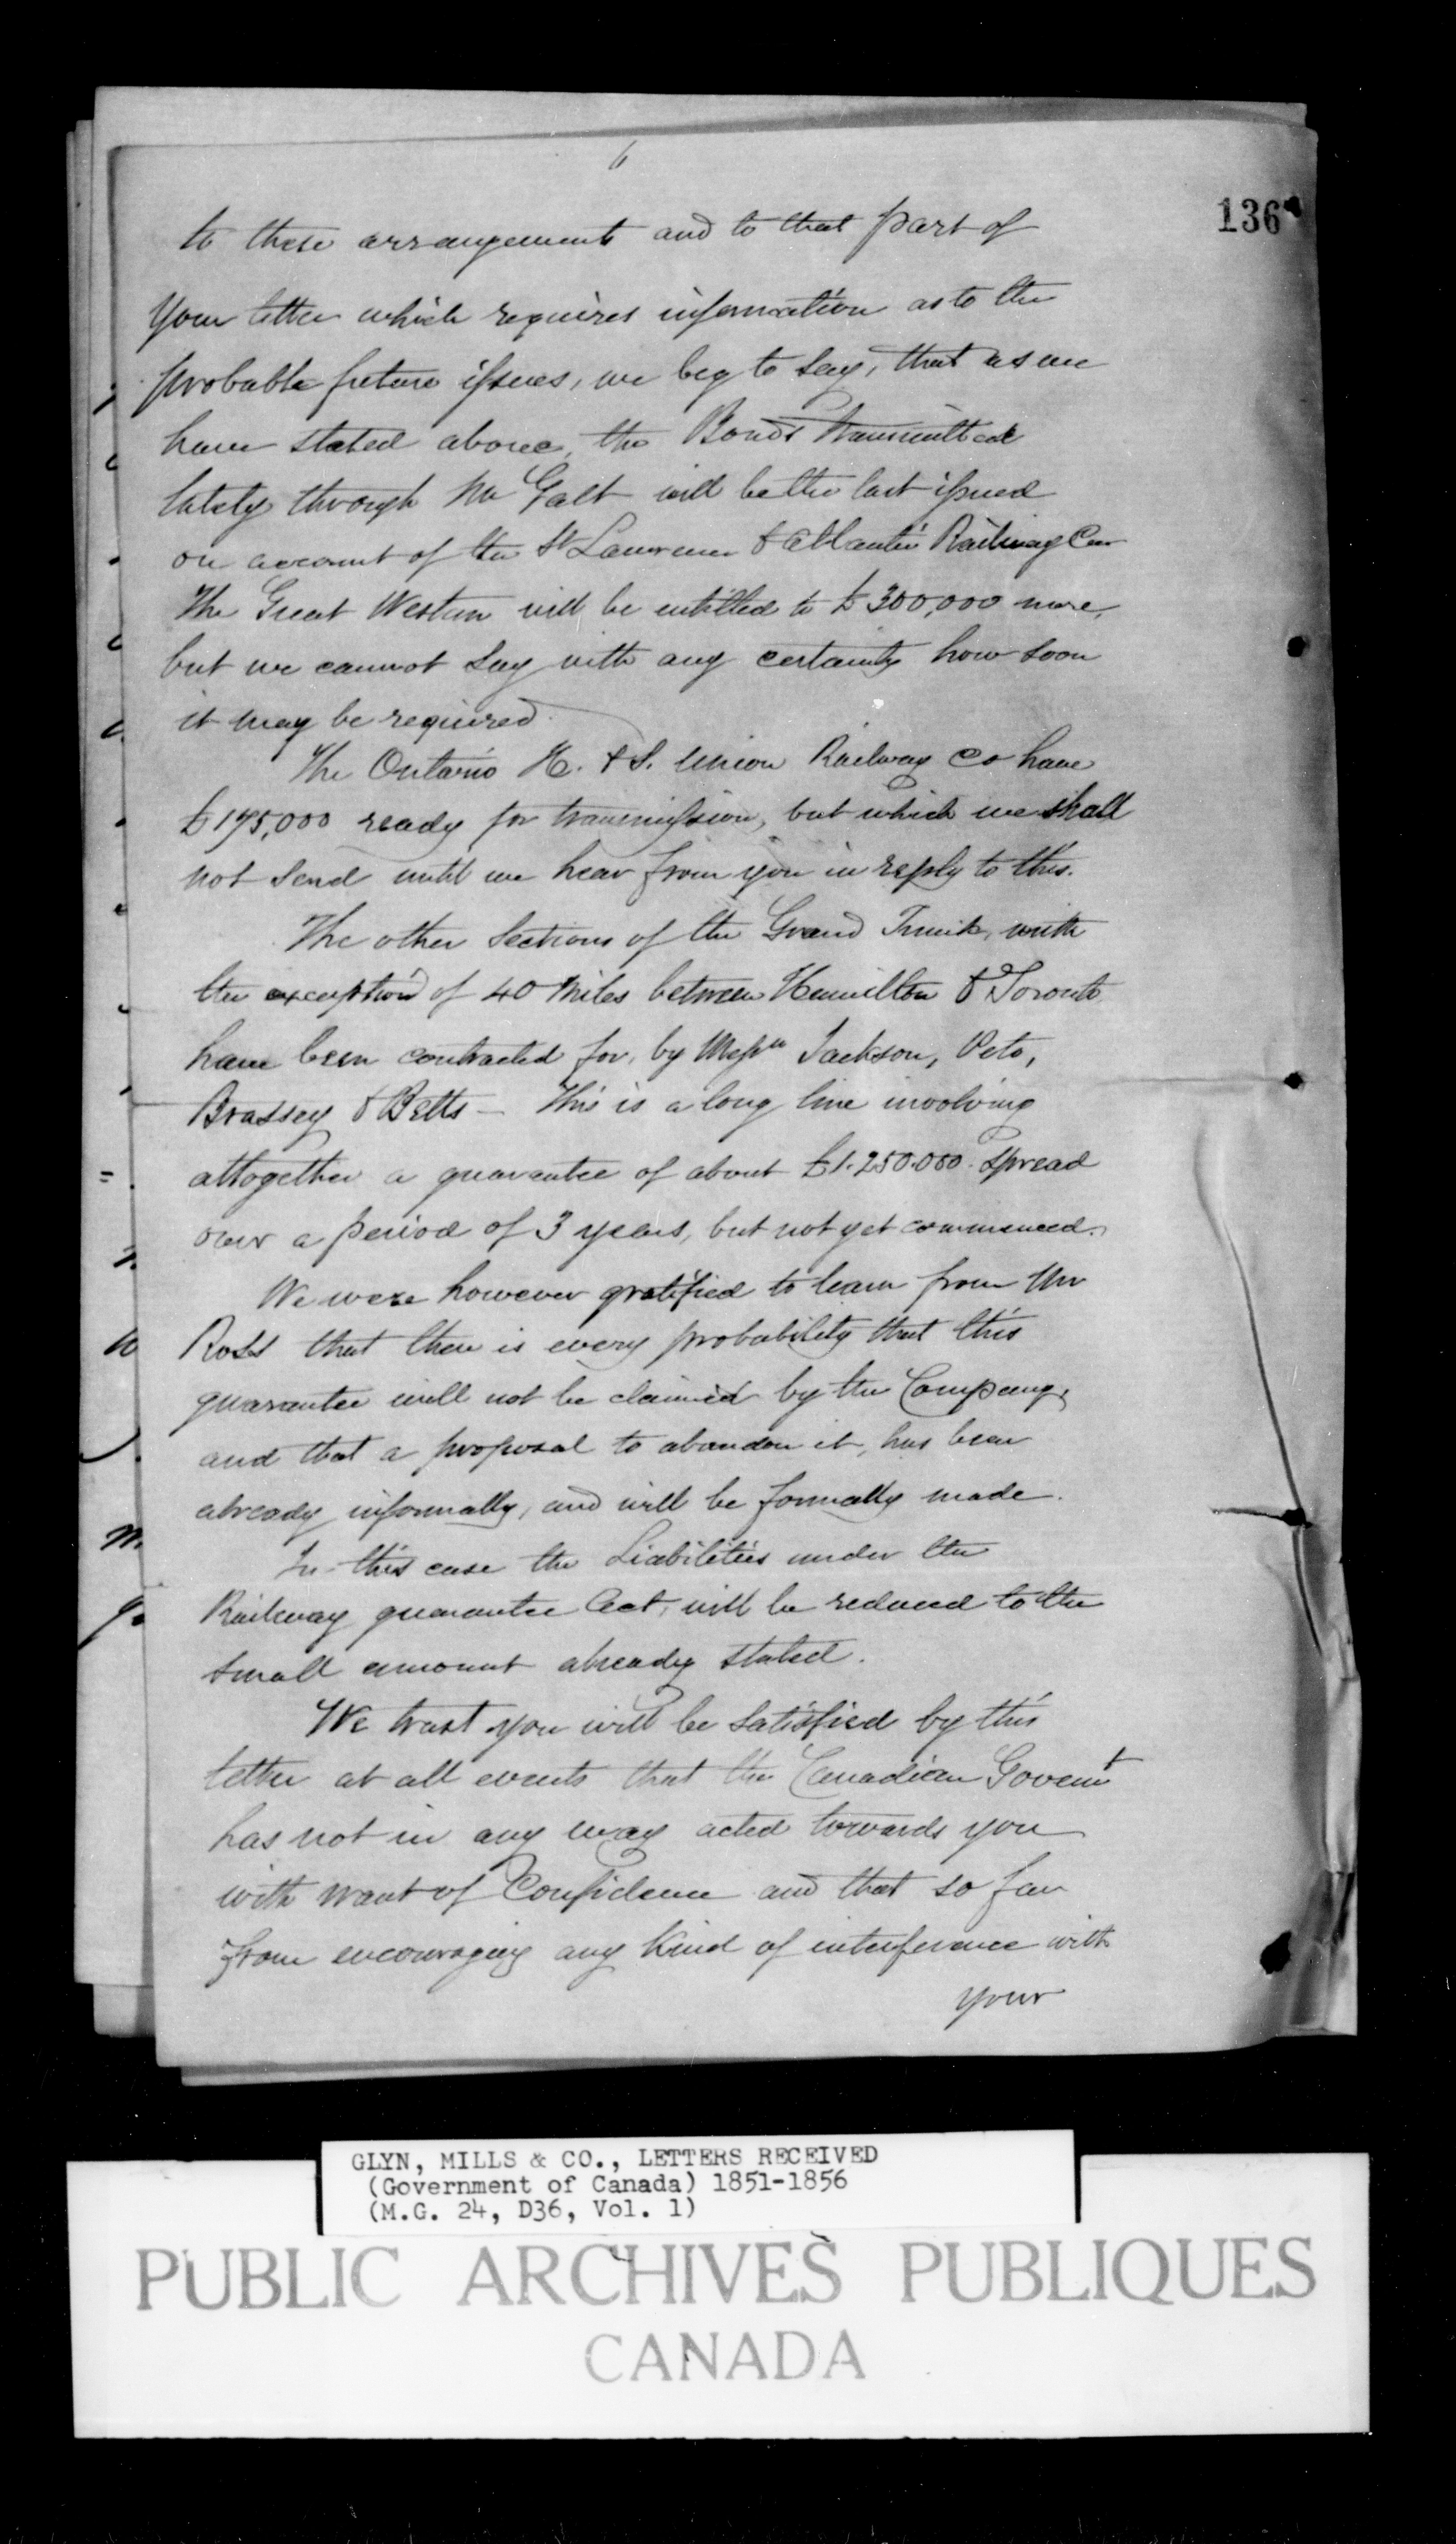 6
136
to these arrangements and to that part of
Your letter which requires information as to the
probable future issues, we beg to say, that as we
have stated above, the Bonds transmitted
lately through Mr Galt will be the last issued
on account of the St Lawrence & Atlantic Railway Co
The Great Western will be entitled to £300,000 more,
but we cannot say with any certainty how soon
it may be required.
The Ontario H. & S. Union Railway Co have
£175,000 ready for transmission, but which we shall
not send until we hear from you in reply to this.
The other Sections of the Grand Trunk, with
the exception of 40 Miles between Hamilton & Toronto
have been contracted for, by Messrs Jackson, Peto,
Brassey & Betts – This is a long line involving
altogether a guarantee of about £1.250.000. Spread
over a period of 3 years, but not yet commenced.
We were however gratified to learn from Mr
Ross that there is every probability that this
guarantee will not be claimed by the Company,
and that a proposal to abandon it, has been
already informally, and will be formally made.
In this case the Liabilities under the
Railway guarantee Act, will be reduced to the
small amount already stated.
We trust you will be satisfied by this
letter at all events that the Canadian Governt
has not in any way acted towards you
with want of Confidence and that so far
from encouraging any kind of interference with
your
GLYN, MILLS & CO., LETTERS RECEIVED
(Government of Canada) 1851-1856
(M.G. 24, D36, Vol. 1)
PUBLIC ARCHIVES PUBLIQUES
CANADA